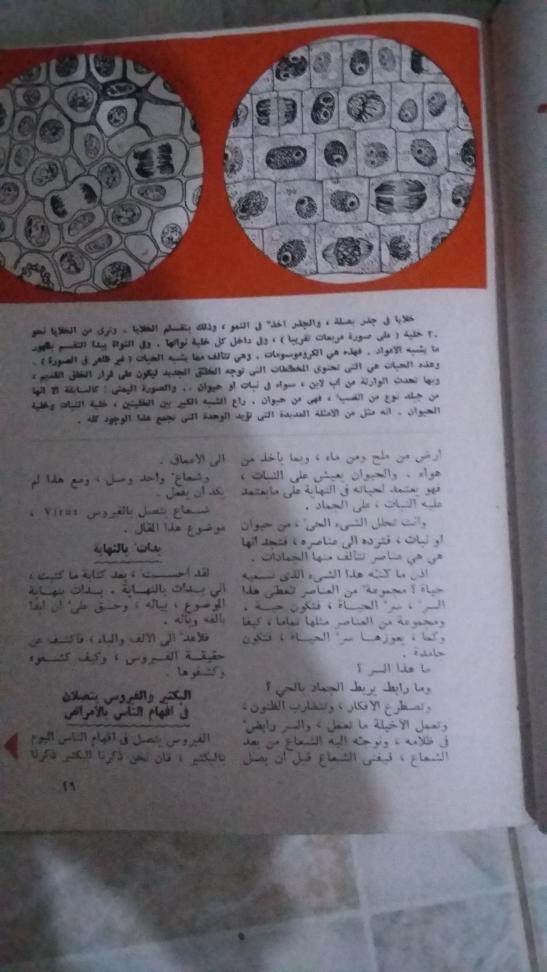 خلايا في جذر بصلة ، والجذر آخذ في النمو ، وذلك بتقسم الخلايا . وترى من الخلايا نحو
٣٠ خلية ( على صورة مربعات تقريبا ) ، وفي داخل كل خلية نواتها . وفي النواة يبدأ التقسم بظهور
ما يشبه الأعواد . فهذه هي الكروموسومات . وهي تتألف مما يشبه الحبات ( غير ظاهر في الصورة ) .
وهذه الحبات هي التي تحتوى المخططات التي توجه الخلق الجديد ليكون على قرار الخلق القديم ،
وبها تحدث الوراثة من أب لابن ، سواء في نبات أو حيوان . . والصورة اليمنى : كالسابقة الا أنها
من جلد نوع من الضب ، فهي من حيوان . راع الشبه الكبير بين الخليتين ، خلية النبات وخلية
الحيوان . انه مثل من الأمثلة العديدة التي تؤيد الوحدة التي تجمع هذا الوجود كله .
أرض من ملح ومن ماء ، وبما يأخذ من
هواء . والحيوان يعيش على النبات ،
فهو يعتمد لحياته في النهاية على ما يعتمد
عليه النبات ، على الجماد .
وأنت تحلل الشيء الحي ، من حيوان
أو نبات ، فترده الى عناصره ، فتجد أنها
هي هي عناصر تتألف منها الجمادات .
اذن ما كنه هذا الشيء الذي نسميه
حياة ؟ مجموعة من العناصر تعطى هذا
السر ، سر الحياة ، فتكون حية .
ومجموعة من العناصر مثلها تماما ، كيفا
وكما ، يعوزها سر الحياة ، فتكون
جامدة .
ما هذا السر ؟
وما رابط يربط الجماد بالحي ؟
وتصطرع الأفكار ، وتتضارب الظنون ،
وتعمل الأخيلة ما تعمل ، والسر رابض
في ظلامه ، ونوجه اليه الشعاع من بعد
الشعاع ، فيفنى الشعاع قبل أن يصل
الى الأعماق .
وشعاع واحد وصل ، ومع هذا لم
يكد أن يفعل .
شعاع يتصل بالفيروس Virus ،
موضوع هذا المقال .
بدأت بالنهاية
لقد أحسست ، بعد كتابة ما كتبت ،
أني بدأت بالنهاية . بدأت بنهاية
الموضوع ، بيائه ، وحق علي أن أبدأ
بألفه وبائه .
فلأعد الى الألف والباء ، فأكشف عن
حقيقة الفيروس ، وكيف كشفوه
وكشفوها .
البكتير والفيروس يتصلان
في أفهام الناس بالأمراض
الفيروس يتصل في أفهام الناس اليوم
بالبكتير ، فان نحن ذكرنا البكتير ذكرنا
٤٩